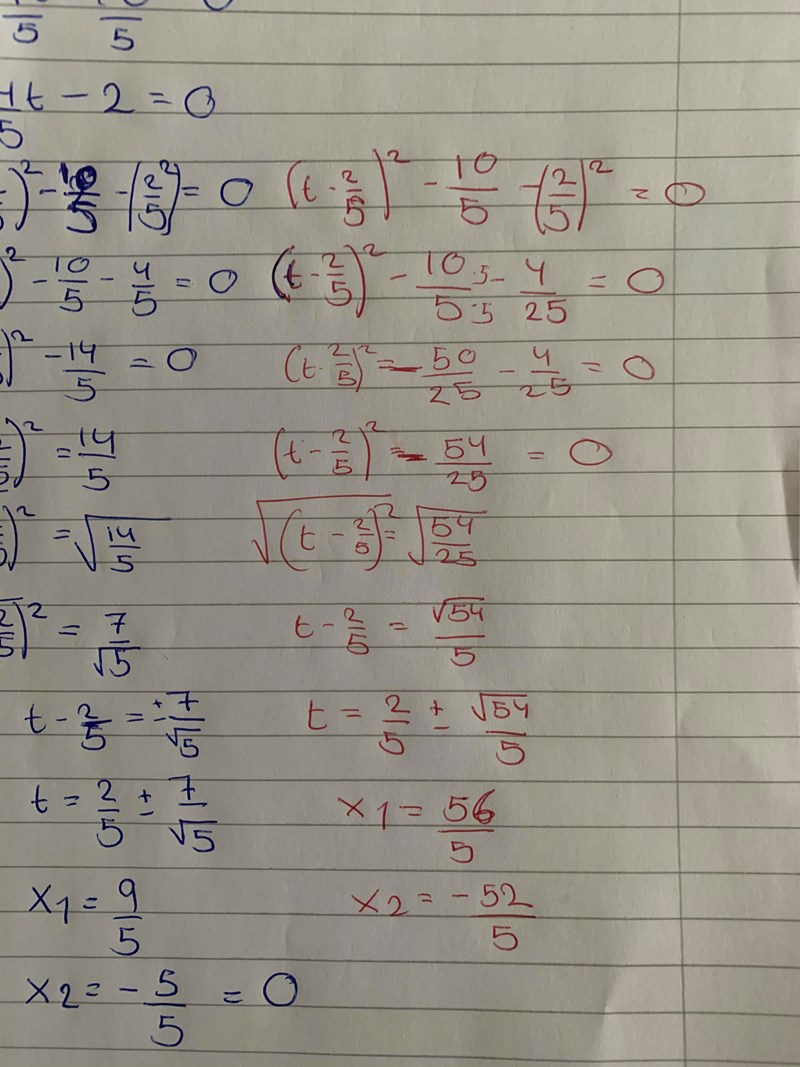 /5 /5 0
4/5 t - 2 = 0
)² - 10/5 - (2/5)² = 0 (t - 2/5)² - 10/5 - (2/5)² = 0
)² - 10/5 - 4/5 = 0 (t - 2/5)² - 10·5/5·5 - 4/25 = 0
)² - 14/5 = 0 (t - 2/5)² = - 50/25 - 4/25 = 0
2/5)² = 14/5 (t - 2/5)² = - 54/25 = 0
)² = √14/5 √(t - 2/5)² = √54/25
2/5)² = 7/√5 t - 2/5 = √54/5
t - 2/5 = ± 7/√5 t = 2/5 ± √54/5
t = 2/5 ± 7/√5 x1 = 56/5
x1 = 9/5 x2 = -52/5
x2 = - 5/5 = 0